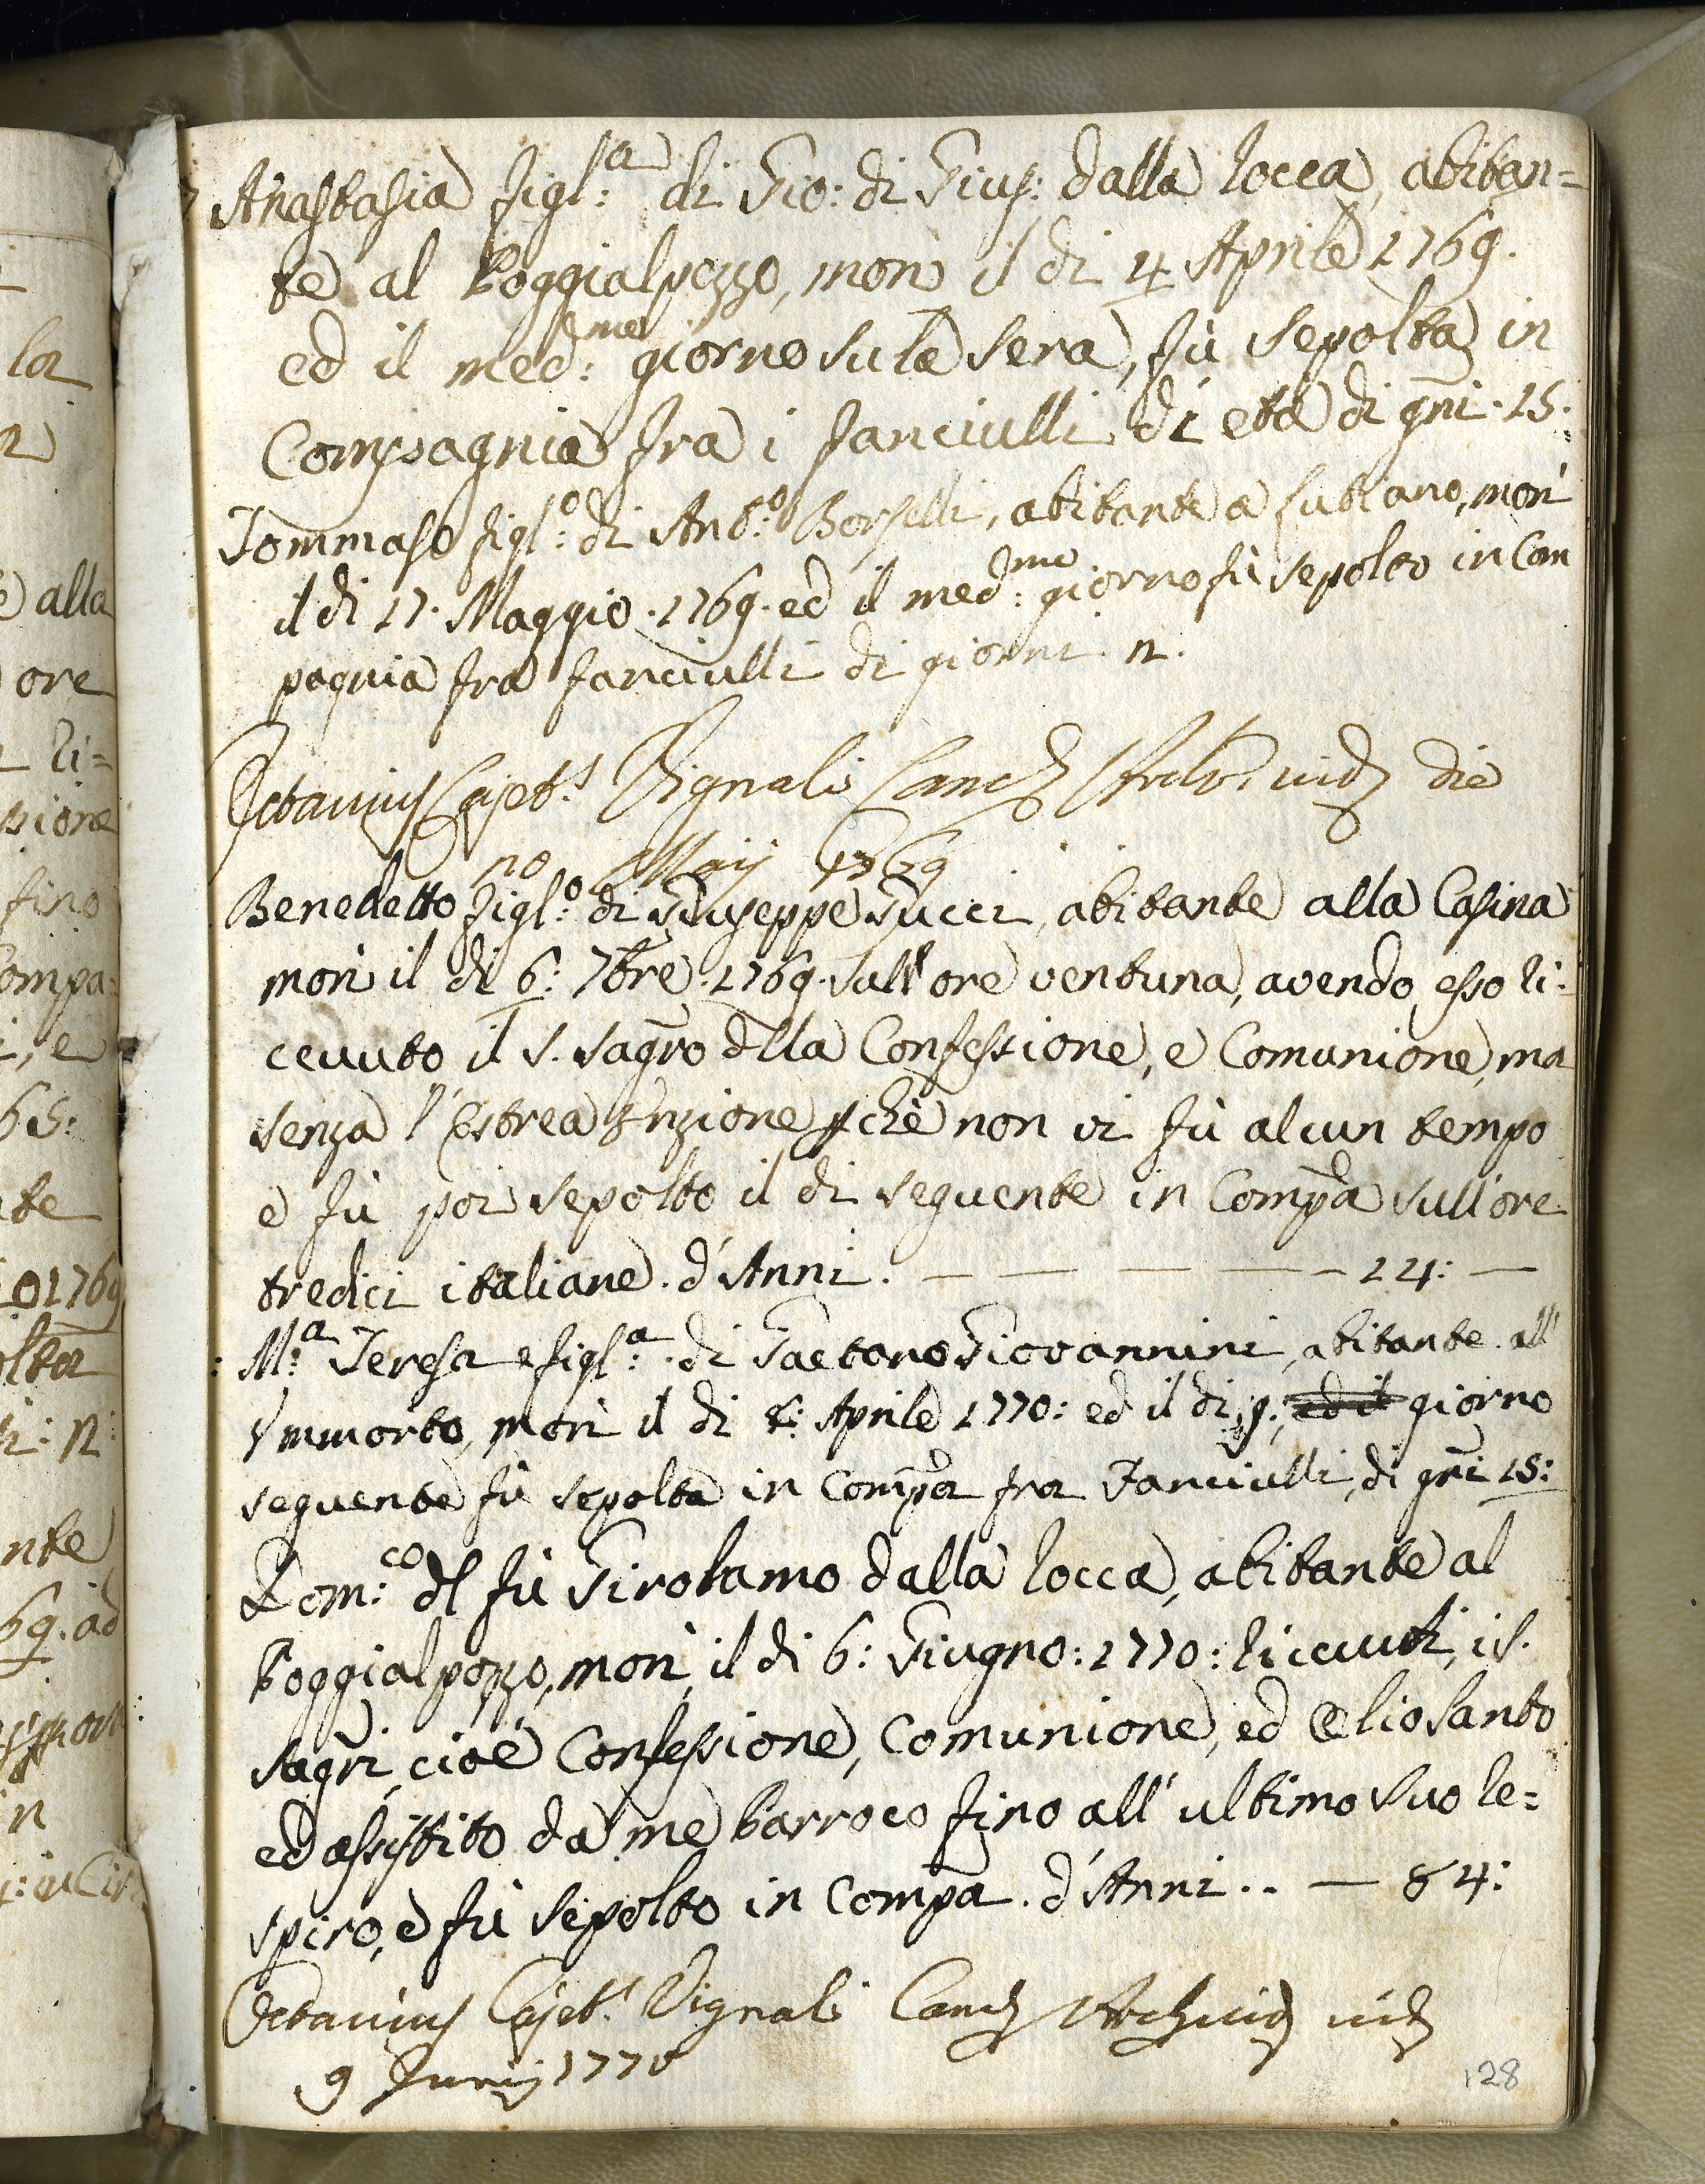 Anastasia figl:a di Gio: di Gius: dalla Rocca, abitan=
te al Poggialpozzo, morì il di 4 Aprile 1769.
ed il med:mo giorno su la sera, fù sepolta in
Compagnia fra i fanciulli di età di gni. 15.
Tommaso figl:o di Ant:o Borselli, abitante a Lublano, morì
il di 17. Maggio. 1769. ed il med:mo giorno fù sepolto in Com
pagnia fra fanciulli di giorni 12.
Octavius Cajet.s Vignali Canc. vid. die
20 Maij 1769
Benedetto figl:o di Giuseppe Succi, abitante alla Casina
morì il di 6: 7bre. 1769. sull'ore ventuna, avendo esso ri=
cevuto il S. Sagro dlla Confessione, e Comunione, ma
senza l'Estrea Unzione pchè non vi fù alcun tempo
e fù poi sepolto il di seguente in Compa sull'ore
tredici italiane. d'Anni. — — — — 24: —
M:a Teresa figl:a di Gaetano Giovannini, abitante all'
Ummorto, morì il di 8: Aprile 1770: ed il di, 9: ed il giorno
seguente fù sepolta in Compa fra Fanciulli, di gni 15:
Dom:co dl fù Girolamo dalla Rocca, abitante al
Poggialpozzo, morì, il di 6: Giugno: 1770: Ricevuti, i S.
Sagri, cioè Confessione, Comunione, ed Olio Santo
ed assistito da me Parroco fino all'ultimo suo re=
spiro, e fù sepolto in Compa. d'Anni.. — 84:
Octavius Cajet.s Vignali Canc. vid.
9 Junij 1770
128